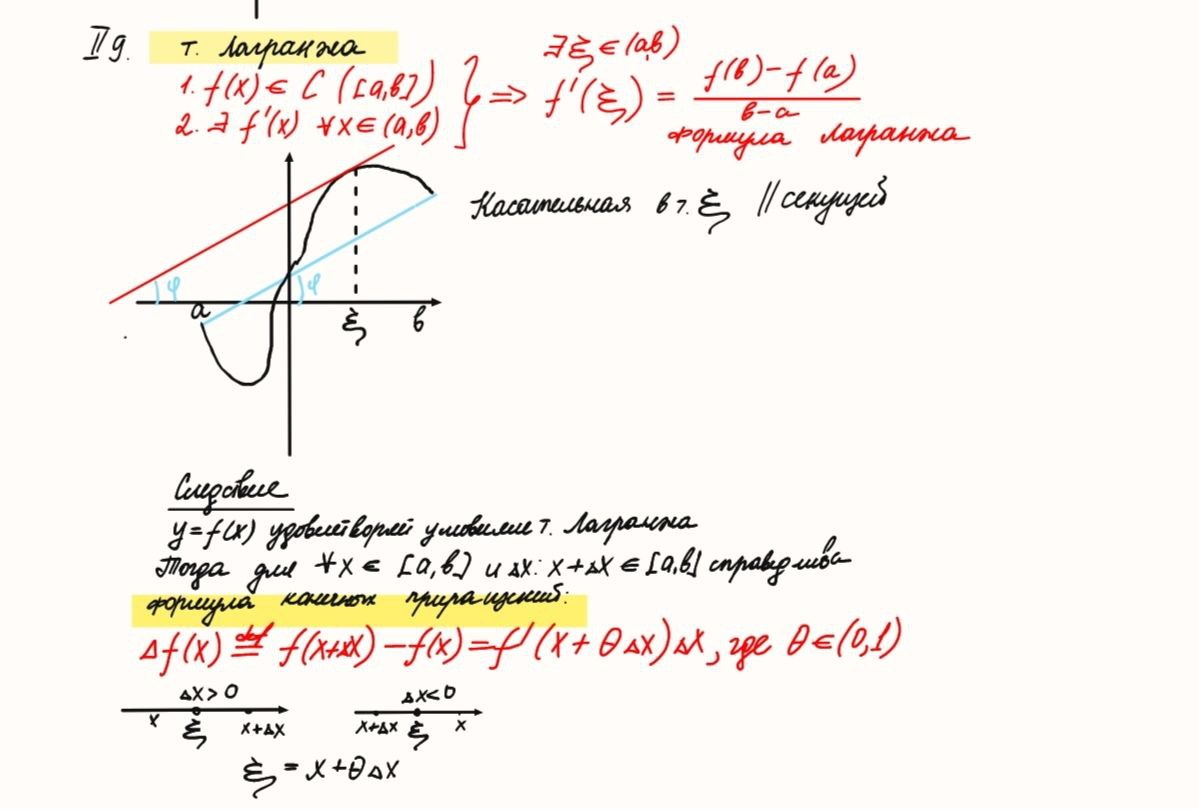 II g. т. Лагранжа
1. f(x) ∈ C ([a,в])
2. ∃ f'(x) ∀x ∈ (a,в)
} ⇒ ∃ ξ ∈ (a,в)
f'(ξ) = (f(в) - f(a)) / (в-a)
формула Лагранжа
Касательная в т. ξ // секущей
φ φ
a ξ в
Следствие
y = f(x) удовлетворяй условиям т. Лагранжа
Тогда для ∀x ∈ [a,в] и Δx: x+Δx ∈ [a,в] справедлива
формула конечных приращений:
Δf(x) ≝ f(x+Δx) - f(x) = f'(x + θΔx)Δx, где θ ∈ (0,1)
Δx > 0 Δx < 0
x ξ x+Δx x+Δx ξ x
ξ = x + θΔx